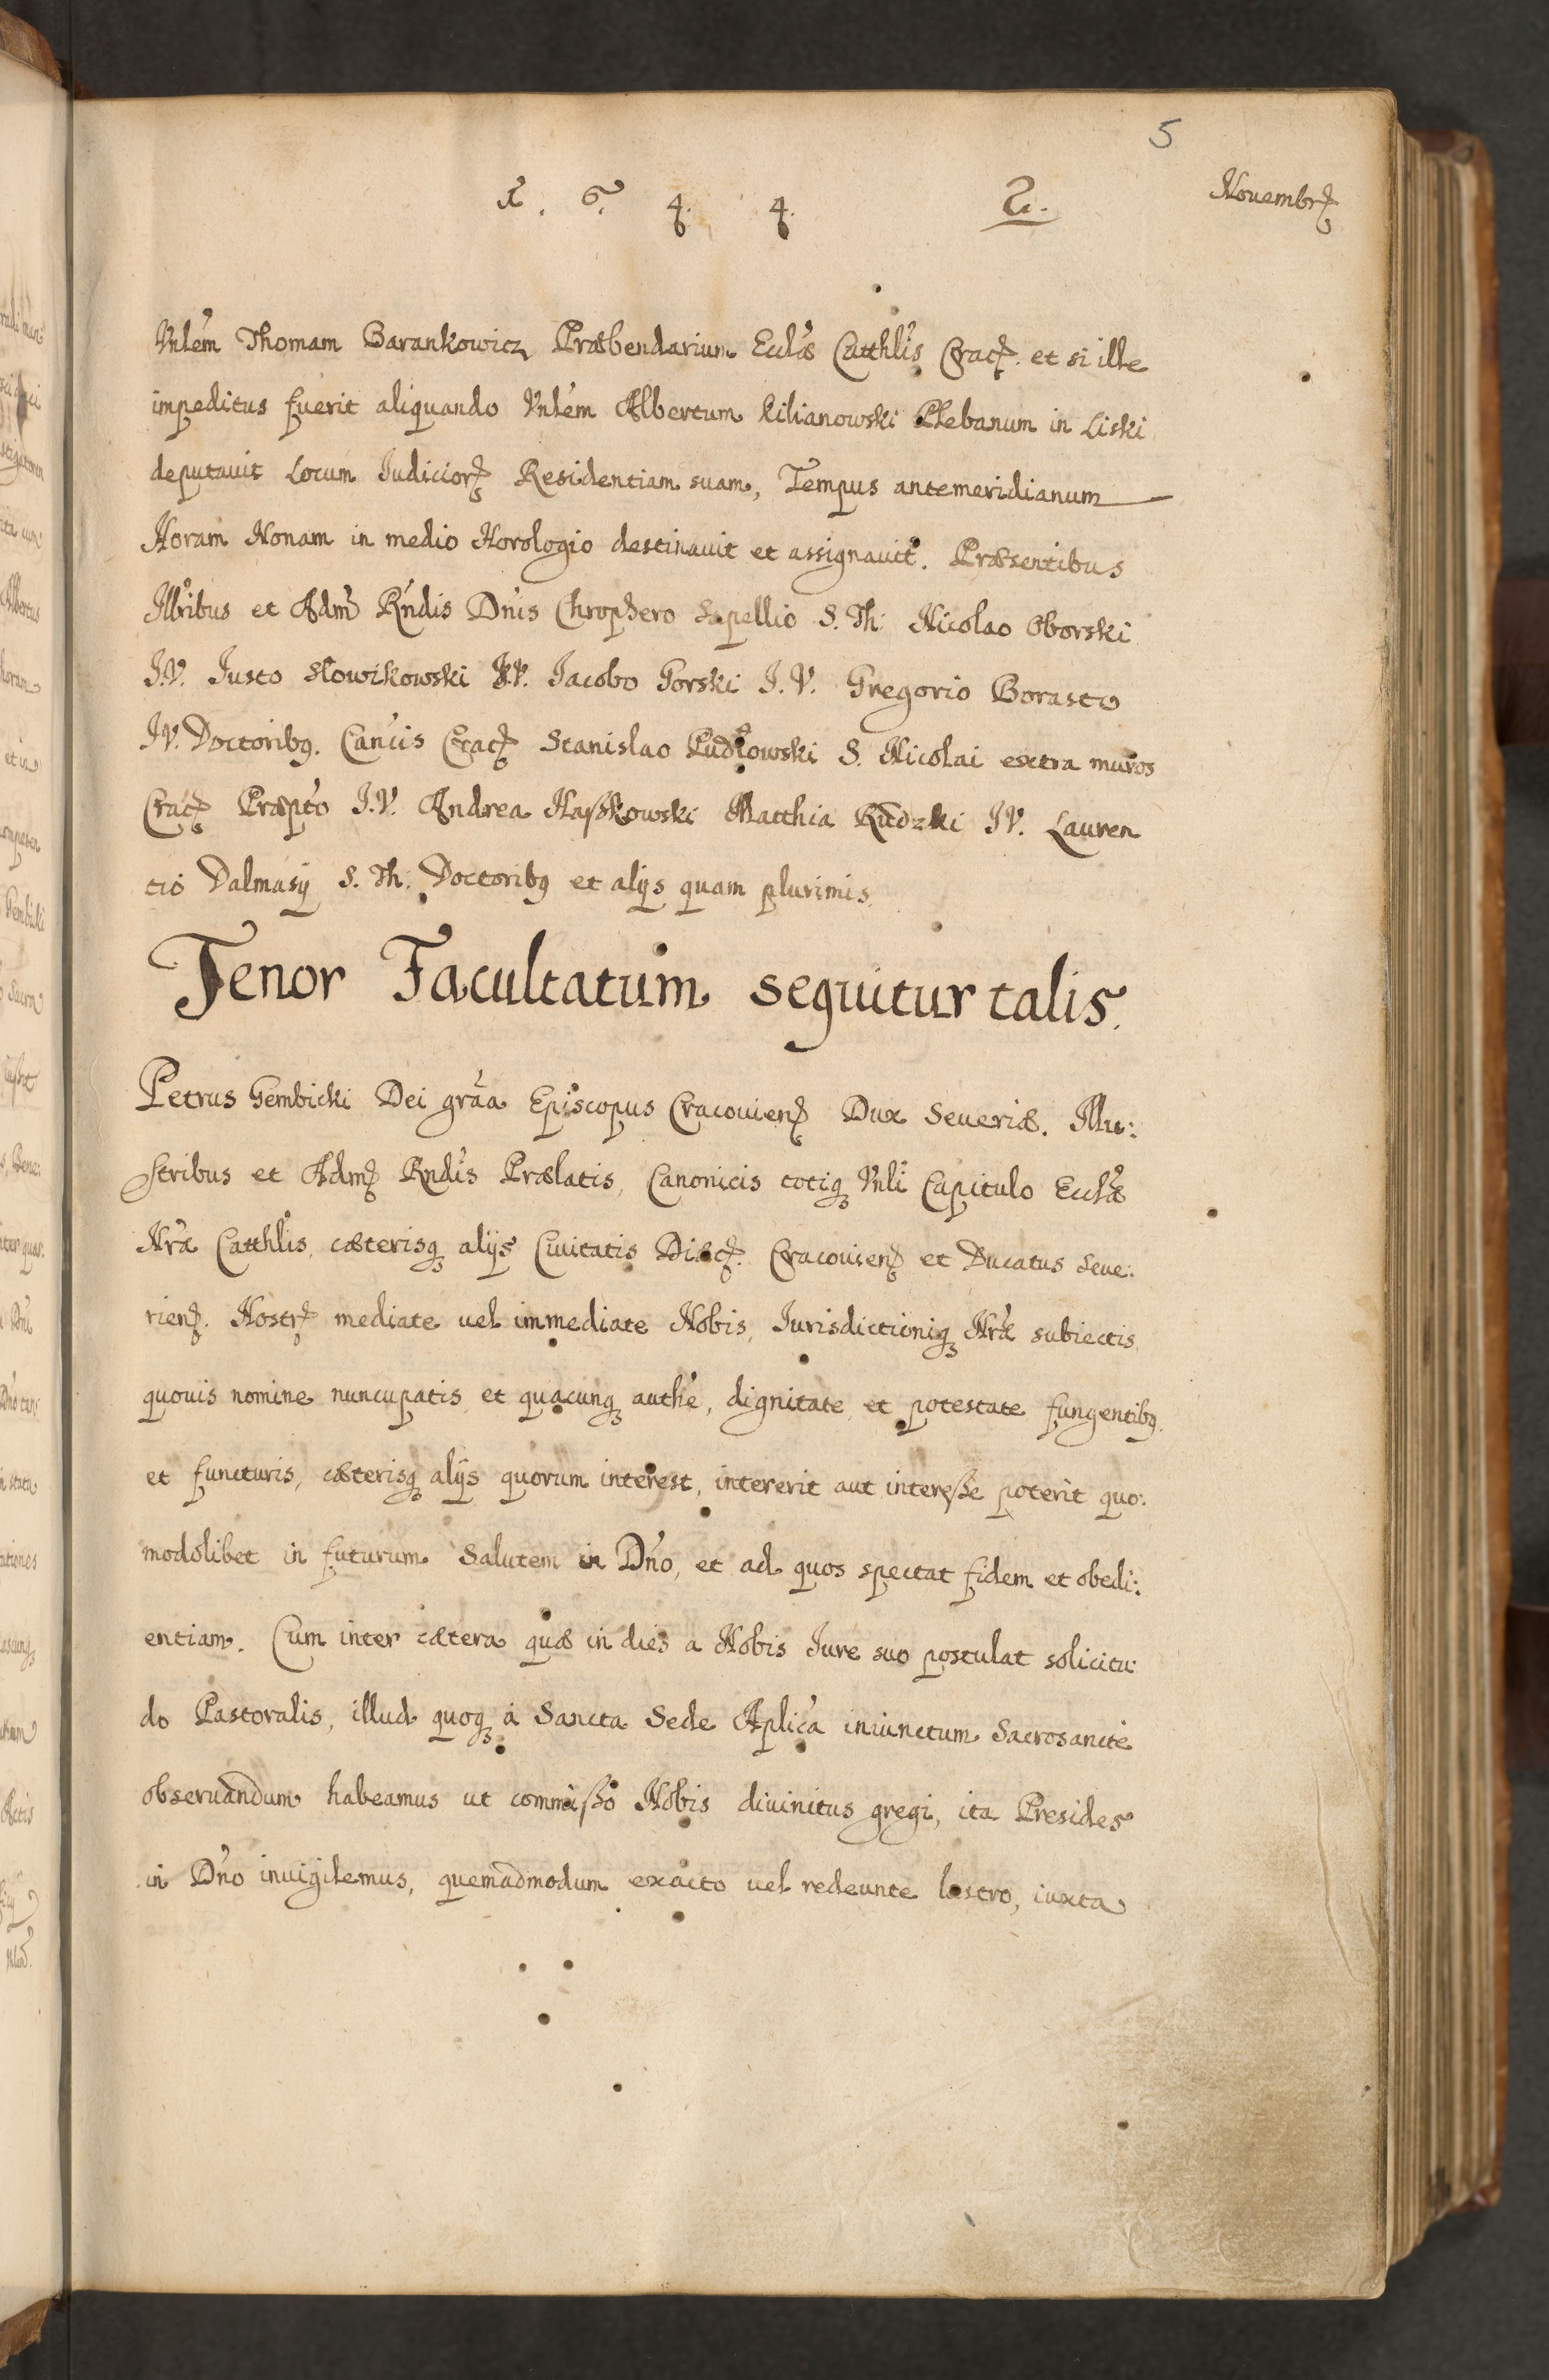 5
1. 6. 4. 4. 2. Novembrꝭ
Vnlem Thomam Barankowicz Præbendarium Ecclæ Catthlis Cracꝭ. et si ille
impeditus fuerit aliquando Vnlem Albertum Kilianowski Plebanum in Liski
deputauit Locum Iudiciorꝭ Residentiam suam, Tempus antemeridianum
Horam Nonam in medio Horologio destinauit et assignauit. Præsentibus
Illribus et Adm Rndis Dnis Chrophero Sapellio S. Th: Nicolao Oborski
I.V. Iusto Słowikowski I.V. Iacobo Gorski I.V. Gregorio Borasto
IV. Doctoribꝫ. Cancis Cracꝭ Stanislao Pudłowski S. Nicolai extra muros
Cracꝭ Præpto I.V. Andrea Haſzkowski Matthia Rudzki IV. Lauren
tio Dalmasij S. Th: Doctoribꝫ et alijs quam plurimis.
Tenor Facultatum sequitur talis.
Petrus Gembicki Dei gra̅a Episcopus Cracouienꝭ Dux Seueriæ. Illu:
stribus et Admꝭ Rndis Prælatis, Canonicis totiqꝫ Vnli Capitulo Ecclæ
Nræ Catthlis, cæterisqꝫ alijs Ciuitatis Diæcꝭ. Cracouienꝭ et Ducatus Seue:
rienꝭ. Nostrꝭ mediate uel immediate Nobis, Iurisdictioniqꝫ Nræ subiectis,
quouis nomine nuncupatis et quacunqꝫ authe, dignitate, et potestate fungentibꝫ.
et functuris, cæterisqꝫ alijs quorum interest, intererit aut intereſse poterit quo:
modolibet in futurum Salutem in Dno, et ad quos spectat fidem et obedi:
entiam. Cum inter cætera quæ in dies a Nobis Iure suo postulat solicitu:
do Pastoralis, illud quoqꝫ à Sancta Sede Aplica iniunctum Sacrosancte
obseruandum habeamus ut commiſso Nobis diuinitus gregi, ita Presides
in Dno inuigilemus, quemadmodum exacto uel redeunte lustro, iuxta